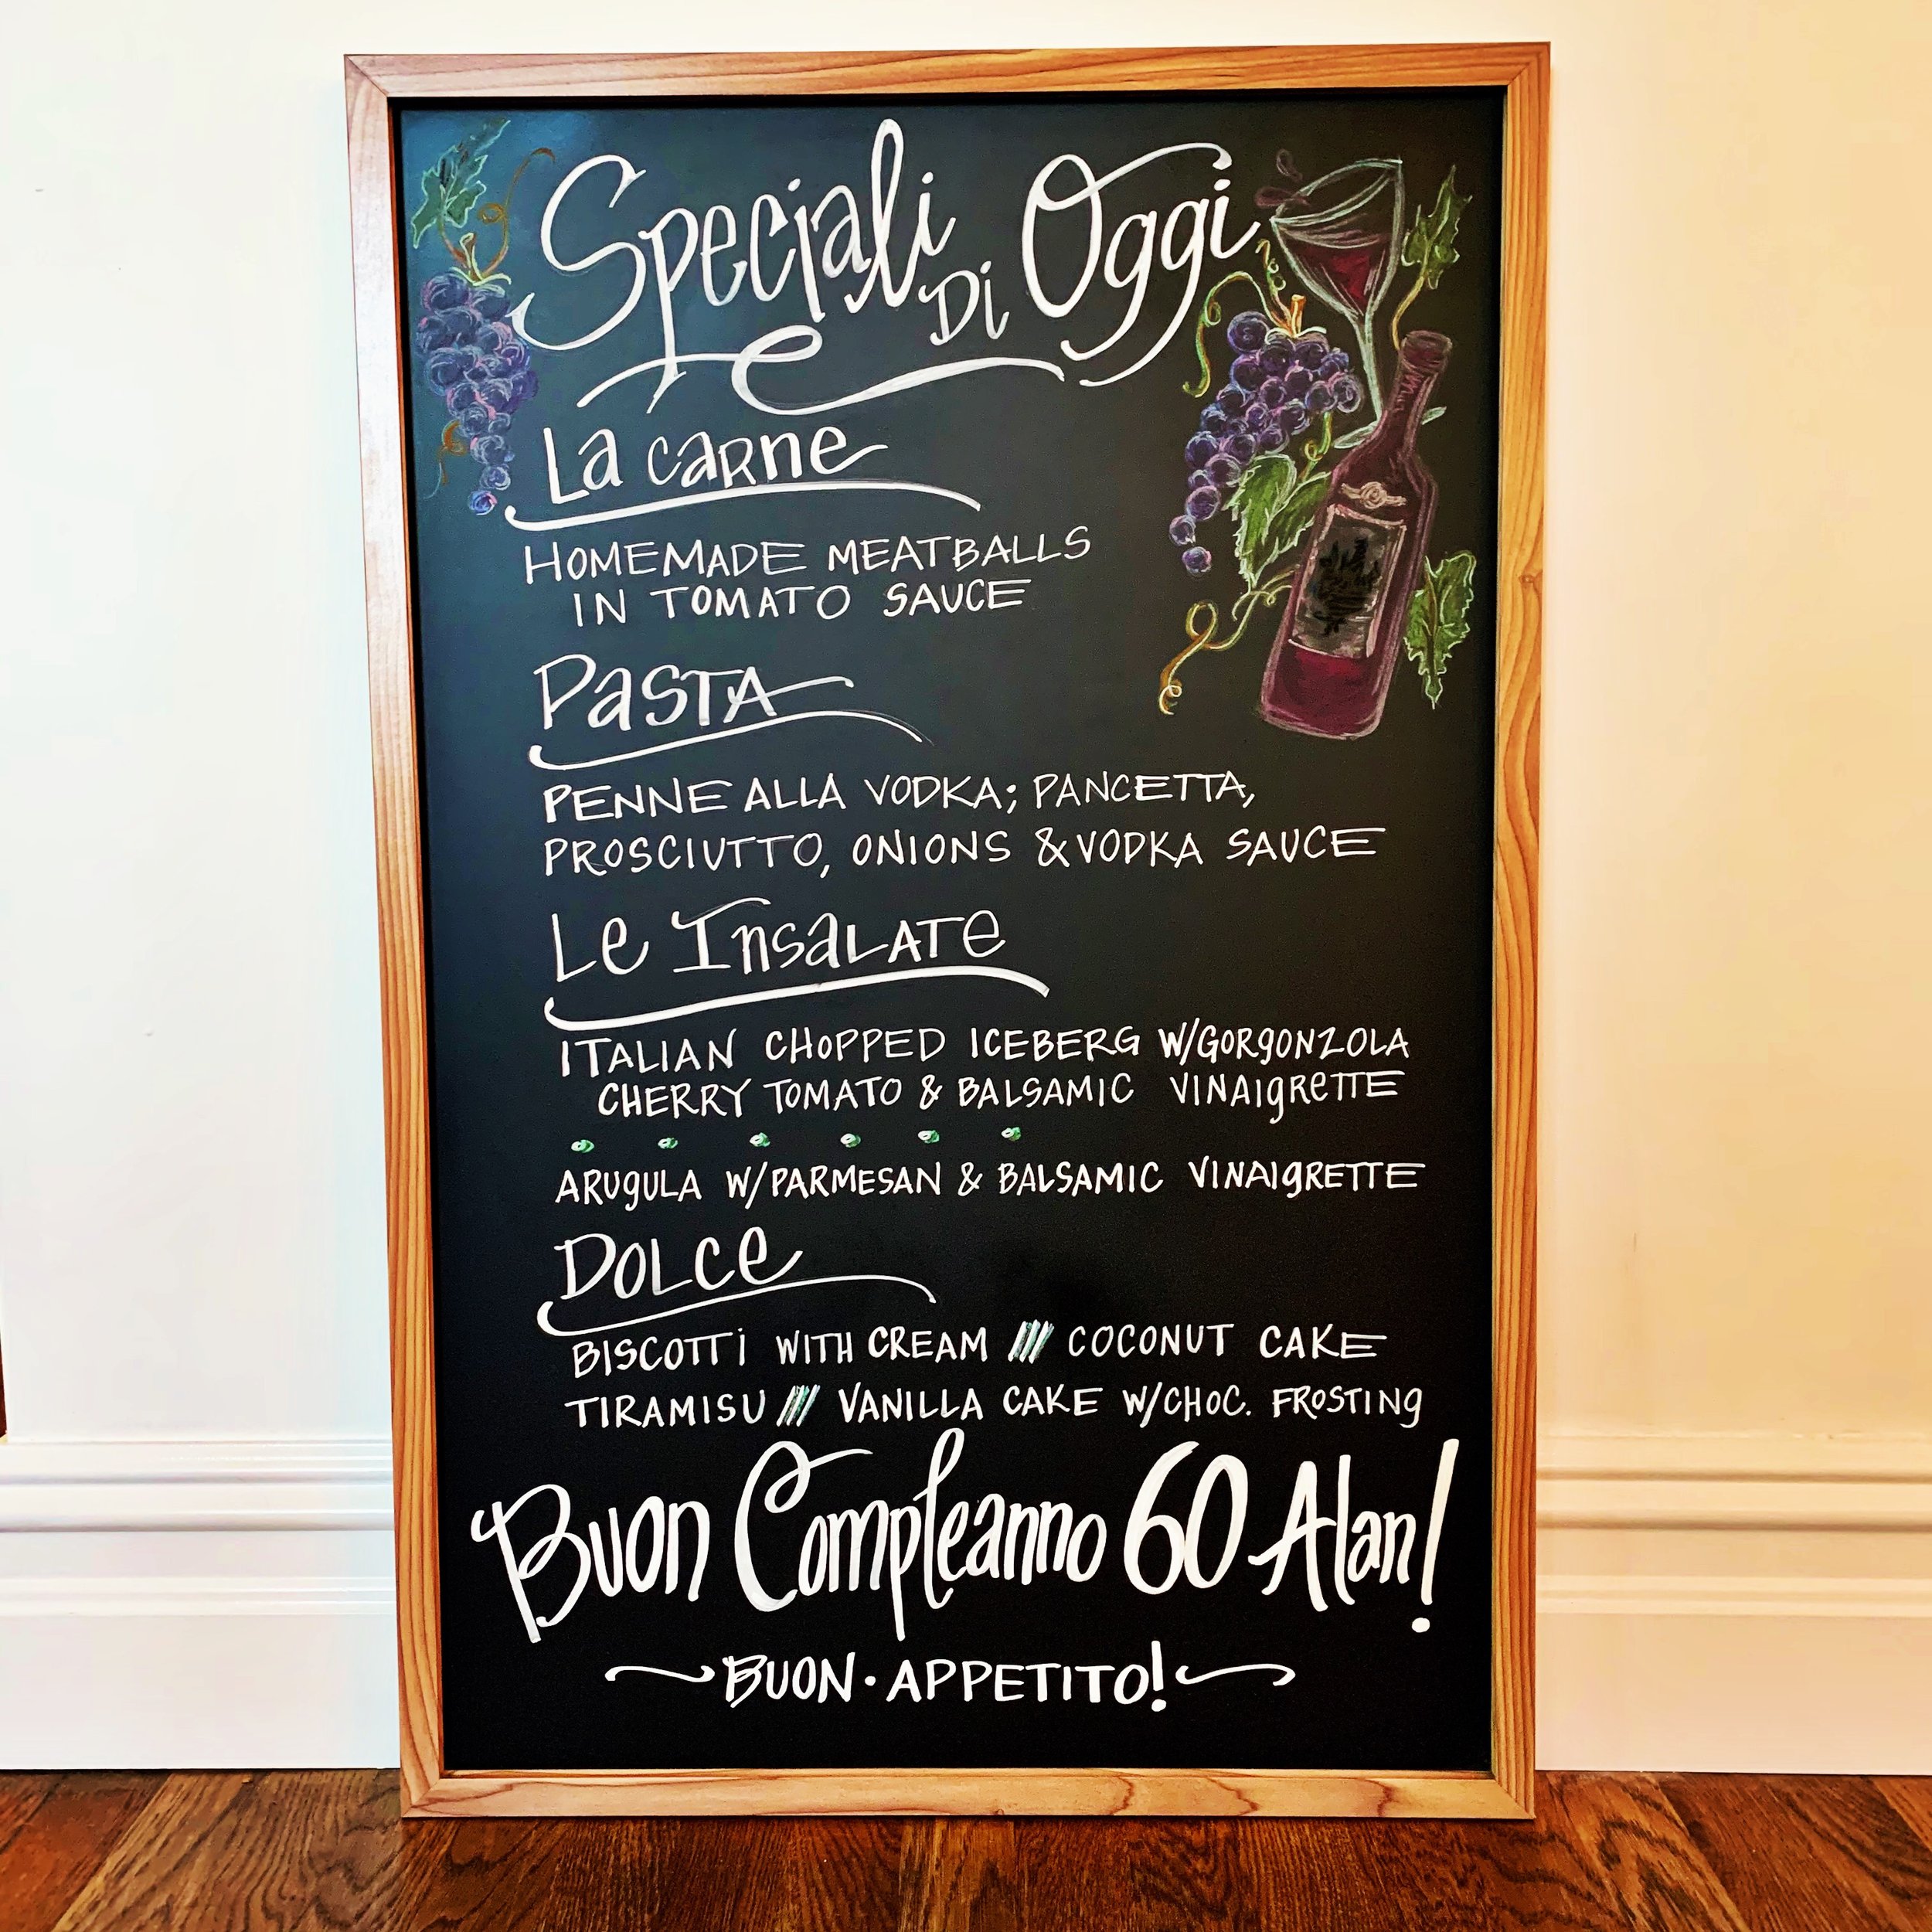 Speciali Di Oggi
La Carne
HOMEMADE MEATBALLS
IN TOMATO SAUCE
Pasta
PENNE ALLA VODKA; PANCETTA,
PROSCIUTTO, ONIONS & VODKA SAUCE
Le Insalate
ITALIAN CHOPPED ICEBERG W/GORGONZOLA
CHERRY TOMATO & BALSAMIC VINAIGRETTE
ARUGULA W/PARMESAN & BALSAMIC VINAIGRETTE
Dolce
BISCOTTI WITH CREAM /// COCONUT CAKE
TIRAMISU /// VANILLA CAKE W/CHOC. FROSTING
Buon Compleanno 60 Alan!
BUON · APPETITO!